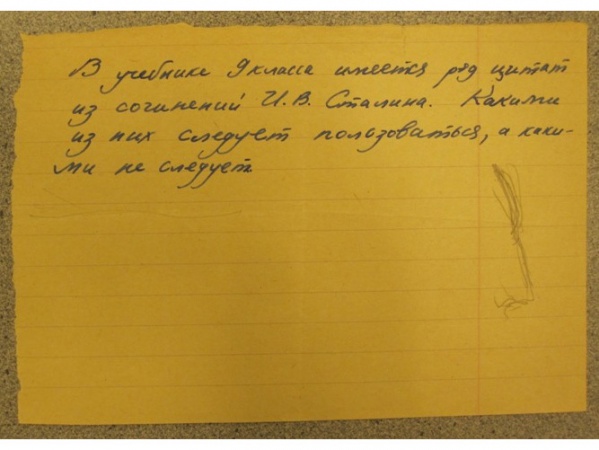 В учебнике 9 класса имеется ряд цитат
из сочинений И. В. Сталина. Какими
из них следует пользоваться, а каки-
ми не следует